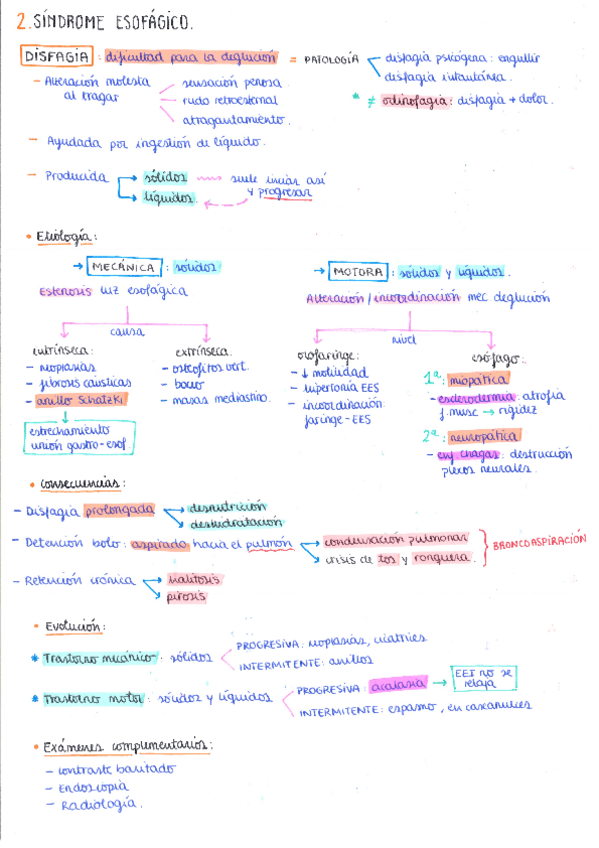 2. SÍNDROME ESOFÁGICO.
DISFAGIA : dificultad para la deglución = PATOLOGÍA
disfagia psicógena: engullir
disfagia instantánea.
* ≠ odinofagia: disfagia + dolor.
- Alteración molesta al tragar
sensación penosa
ruido retroesternal
atragantamiento.
- Ayudada por ingestión de líquido.
- Producida → sólidos suele iniciar así
→ líquidos. y progresar
• Etiología:
→ MECÁNICA : sólidos
Estenosis luz esofágica
causa
intrínseca:
- neoplasias
- fibrosis cáusticas
- anillo Schatzki
estrechamiento
unión gastro-esof
extrínseca:
- osteofitos vert.
- bocio
- masas mediastino.
→ MOTORA : sólidos y líquidos.
Alteración/incoordinación mec deglución
nivel
orofaringe:
- ↓ motilidad
- hipertonía EES
- incoordinación
faringe-EES
esófago:
1ª: miopática
- esclerodermia: atrofia
f. musc → rigidez
2ª: neuropática
- enf. chagas: destrucción
plexos neurales.
• Consecuencias:
- Disfagia prolongada → desnutrición
→ deshidratación
- Detención bolo: aspirado hacia el pulmón → condensación pulmonar
→ crisis de tos y ronquera.
BRONCOASPIRACIÓN
- Retención crónica → halitosis
→ pirosis
• Evolución:
* Trastorno mecánico: sólidos
PROGRESIVA: neoplasias, cicatrices
INTERMITENTE: anillos
* Trastorno motor: sólidos y líquidos
PROGRESIVA: acalasia → EEI no se relaja
INTERMITENTE: espasmo, en cascanueces
• Exámenes complementarios:
- Contraste baritado
- Endoscopia
- Radiología.